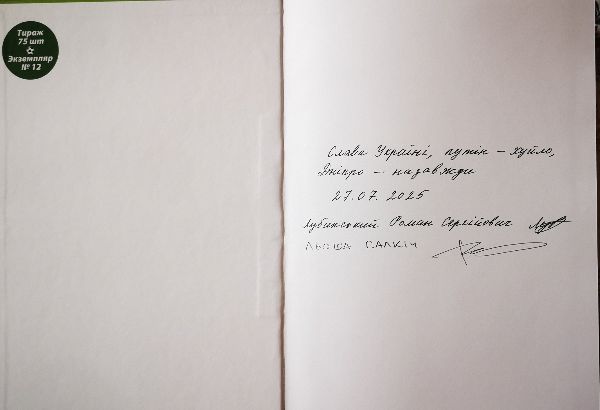 Тираж
75 шт
Экземпляр
№ 12
Слава Україні, путін – хуйло,
Дніпро – назавжди
27.07.2025
Лубинський Роман Сергійович